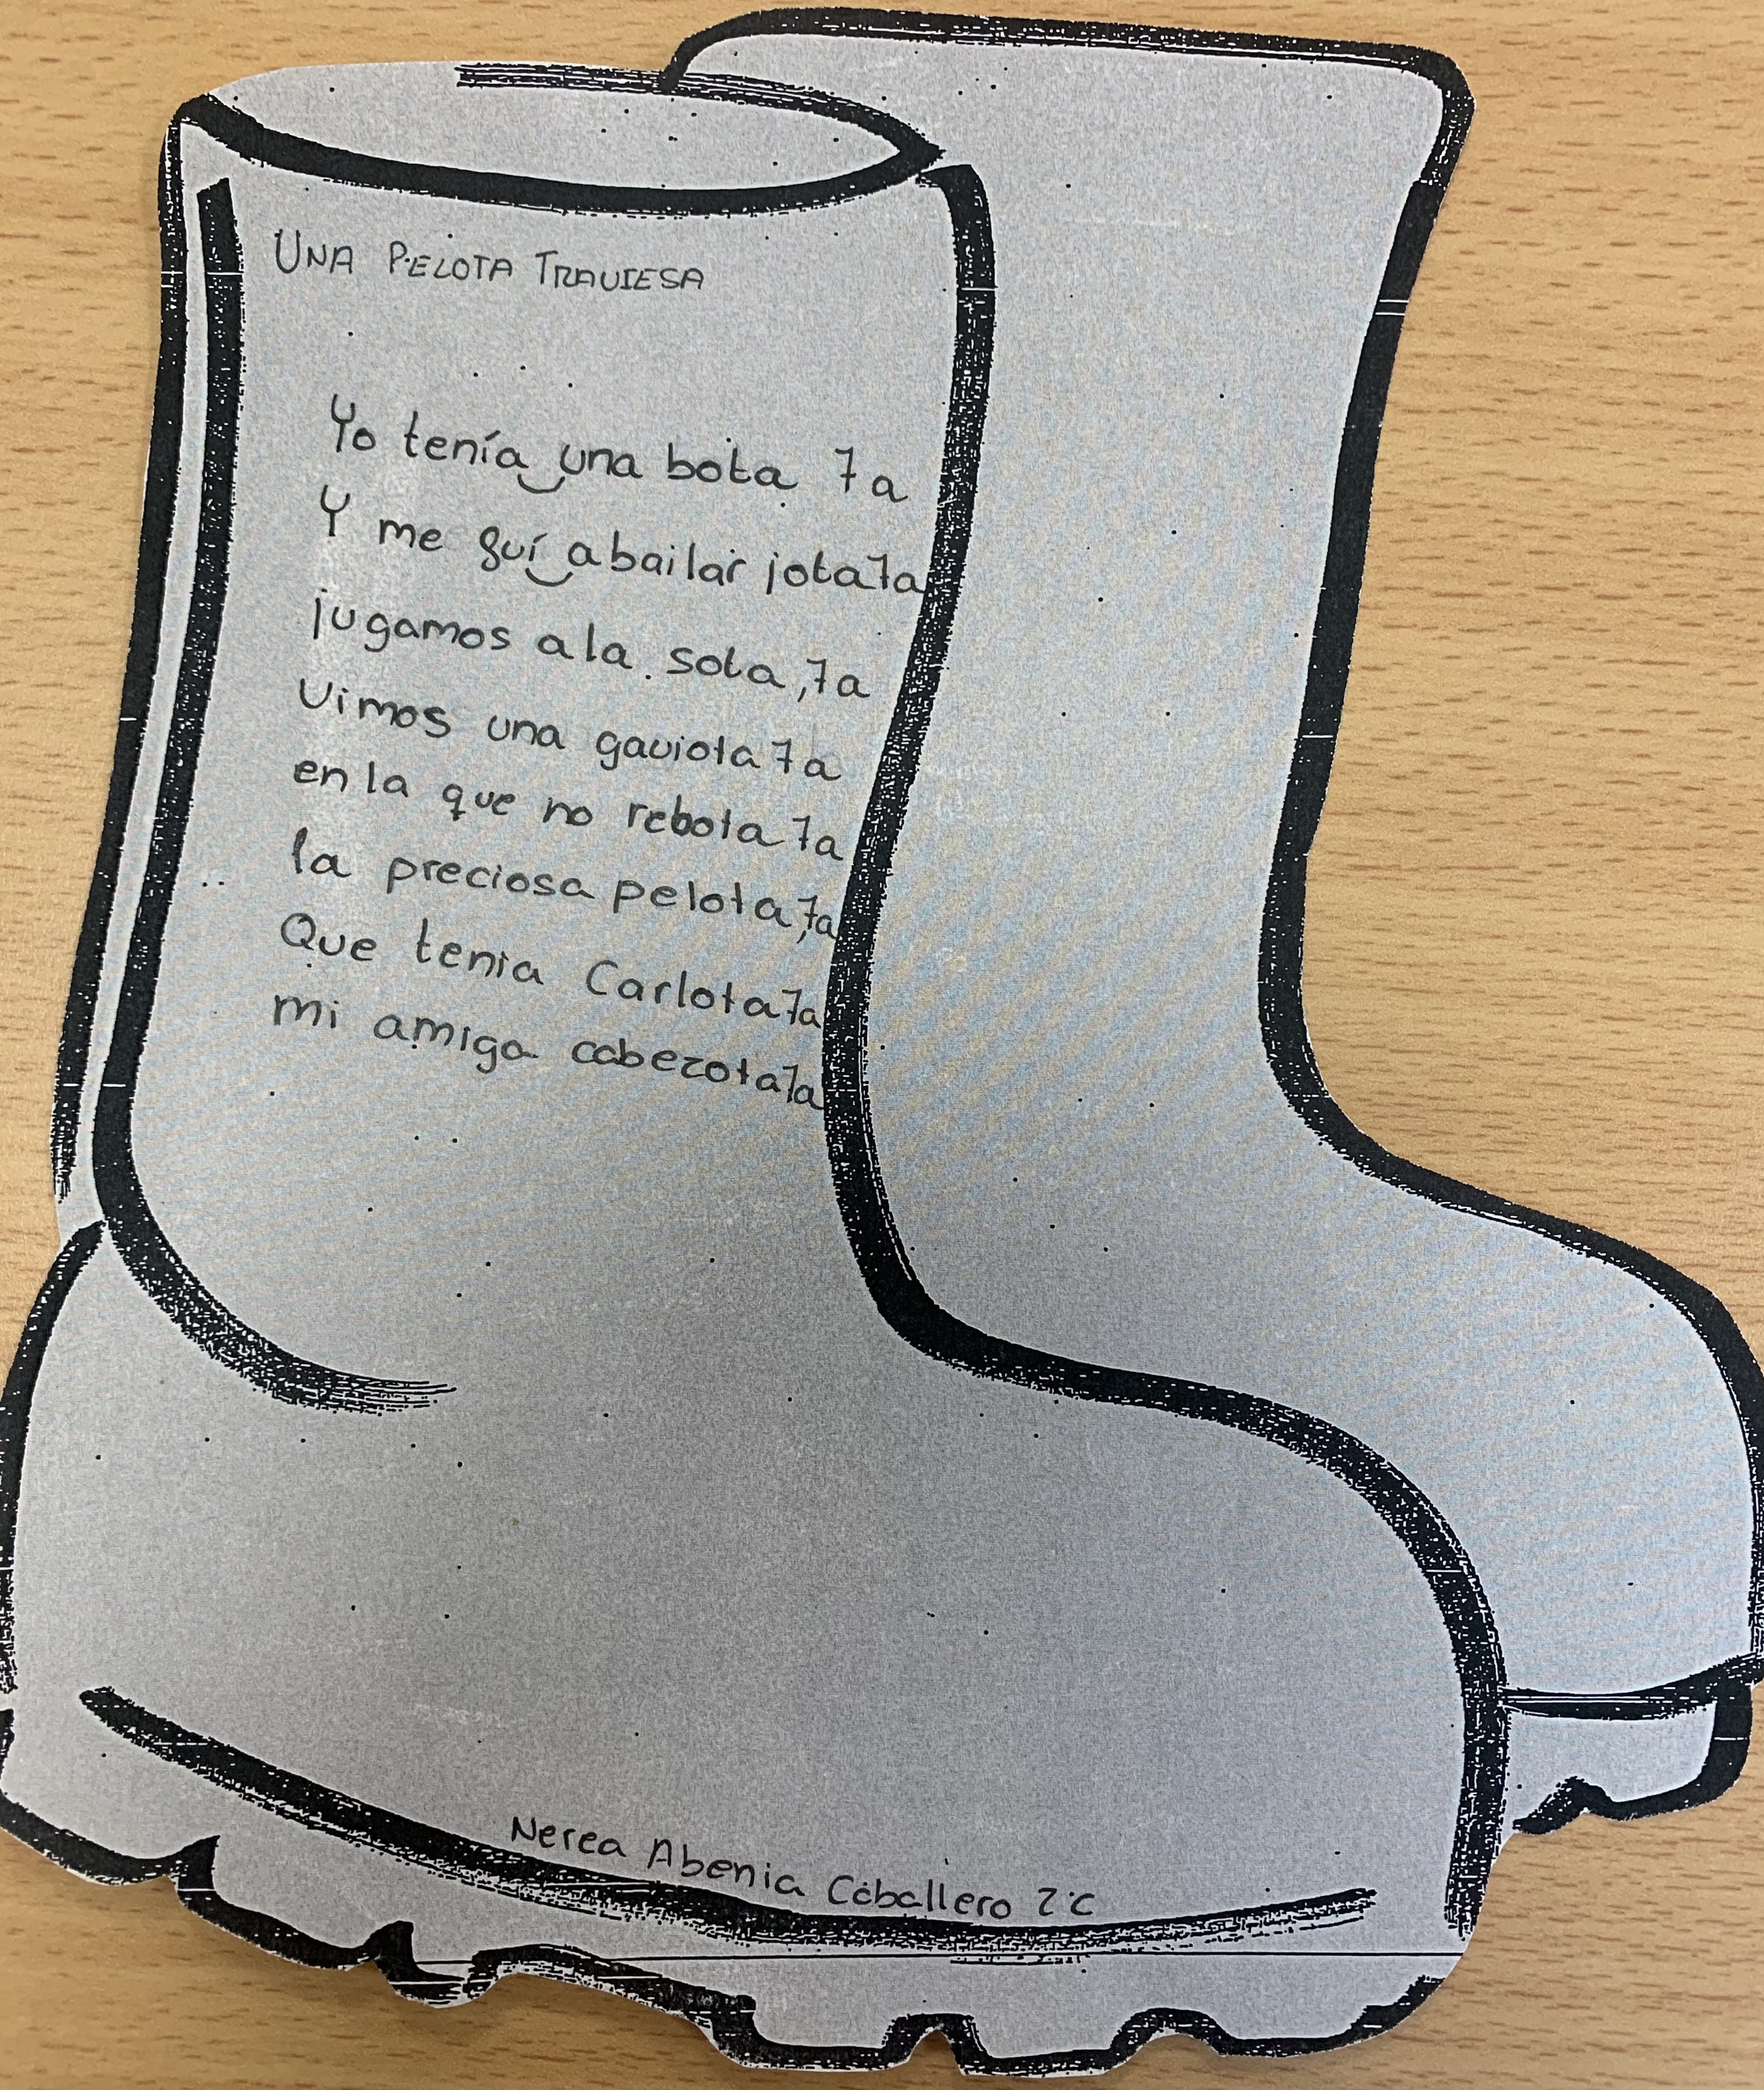 UNA PELOTA TRAVIESA
Yo tenía una bota 7a
Y me fuí a bailar jota 7a
jugamos a la sota, 7a
Vimos una gaviota 7a
en la que no rebota 7a
la preciosa pelota, 7a
Que tenia Carlota 7a
mi amiga cabezota 7a
Nerea Abenia Caballero 2ºC